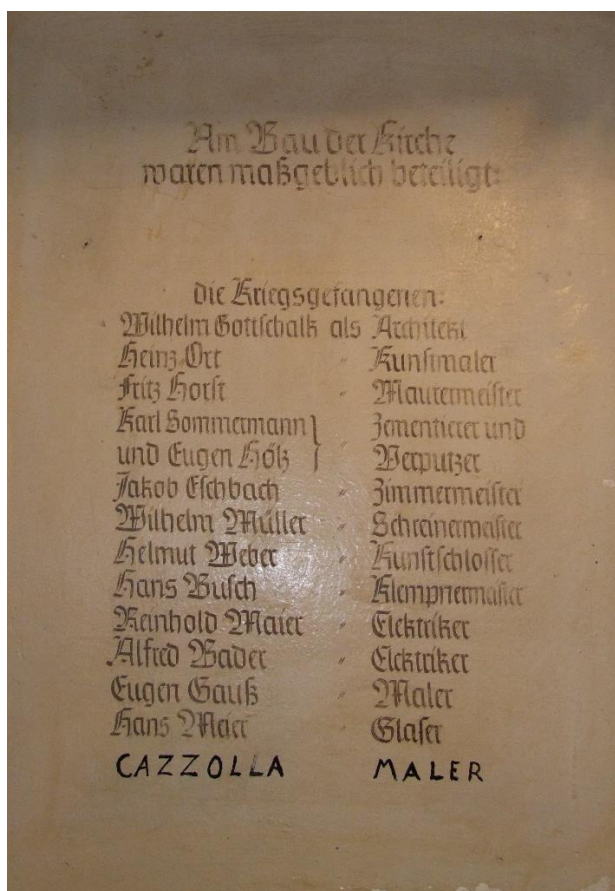 Am Bau der Kirche
waren maßgeblich beteiligt:
die Kriegsgefangenen:
Wilhelm Gottschalk als Architekt
Heinz Ort " Kunstmaler
Fritz Horst " Maurermeister
Karl Sommermann } Zementierer und
und Eugen Hölz } " Verputzer
Jakob Eschbach " Zimmermeister
Wilhelm Müller " Schreinermaster
Helmut Weber " Kunstschlosser
Hans Busch " Klempnermaster
Reinhold Maier " Elektriker
Alfred Bader " Elektriker
Eugen Gauß " Maler
Hans Meier " Glaser
CAZZOLLA MALER